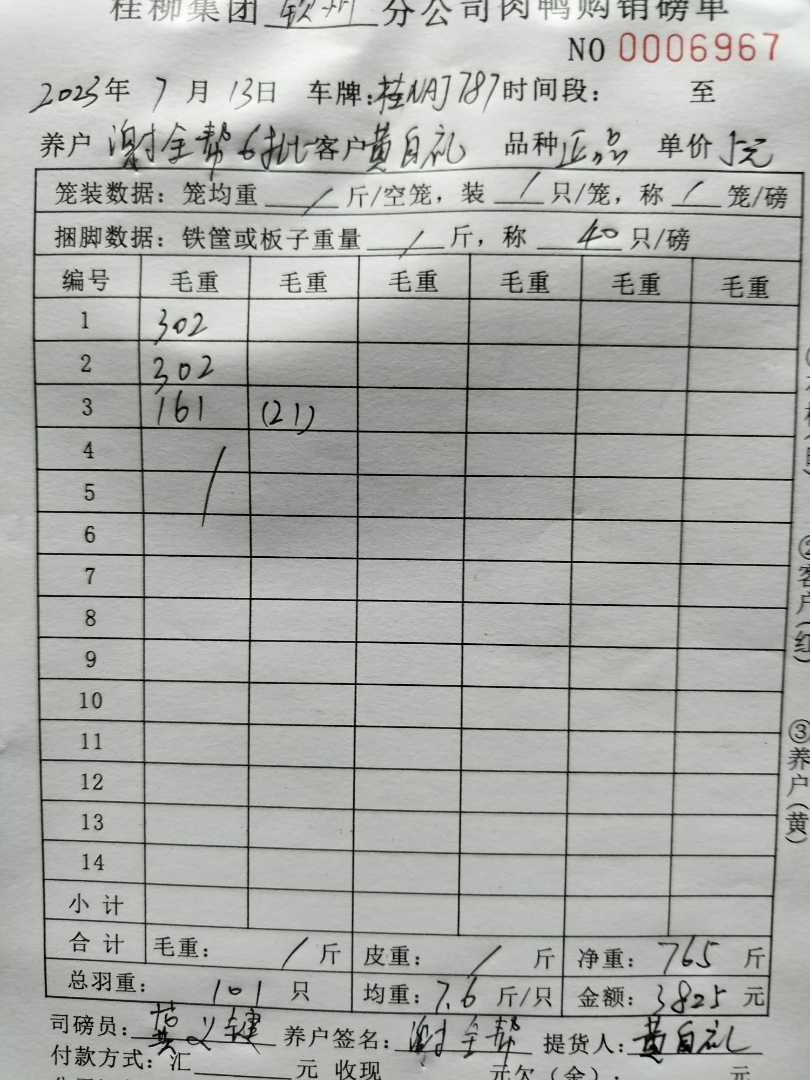 桂柳集团 钦州 分公司肉鸭购销磅单
NO 0006967
2023年 7月 13日 车牌:桂NAJ787时间段: 至
养户 谢全帮6批 客户 黄自礼 品种 正品 单价 5元
笼装数据:笼均重 / 斤/空笼,装 / 只/笼,称 / 笼/磅
捆脚数据:铁筐或板子重量 / 斤,称 40 只/磅
编号 毛重 毛重 毛重 毛重 毛重 毛重
1 302
2 302
3 161 (21)
4 /
5
6
7
8
9
10
11
12
13
14
小计
合计 毛重: / 斤 皮重: / 斤 净重: 765 斤
总羽重: 101 只 均重: 7.6 斤/只 金额: 3825 元
司磅员: 黄义健 养户签名: 谢全帮 提货人: 黄自礼
付款方式:汇 元 收现 元欠(余): 元
②客户(红)
③养户(黄)